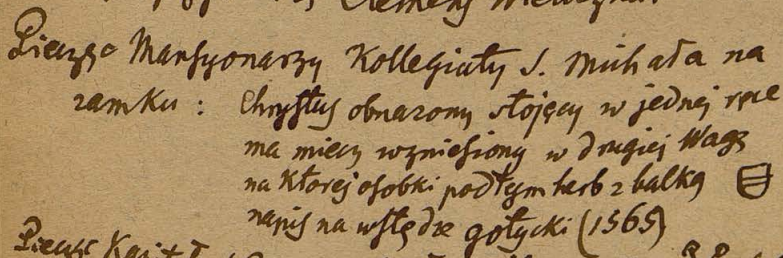 Clemens
Pieczęć Mansyonarzy Kollegiaty S. Michała na
zamku : Chrystus obnażony stojący w jednej ręce
ma miecz wzniesiony w drugiej Wagę
na której osobki pod tym herb z belką
napis na wstędze gotycki (1565)
Pieczęć